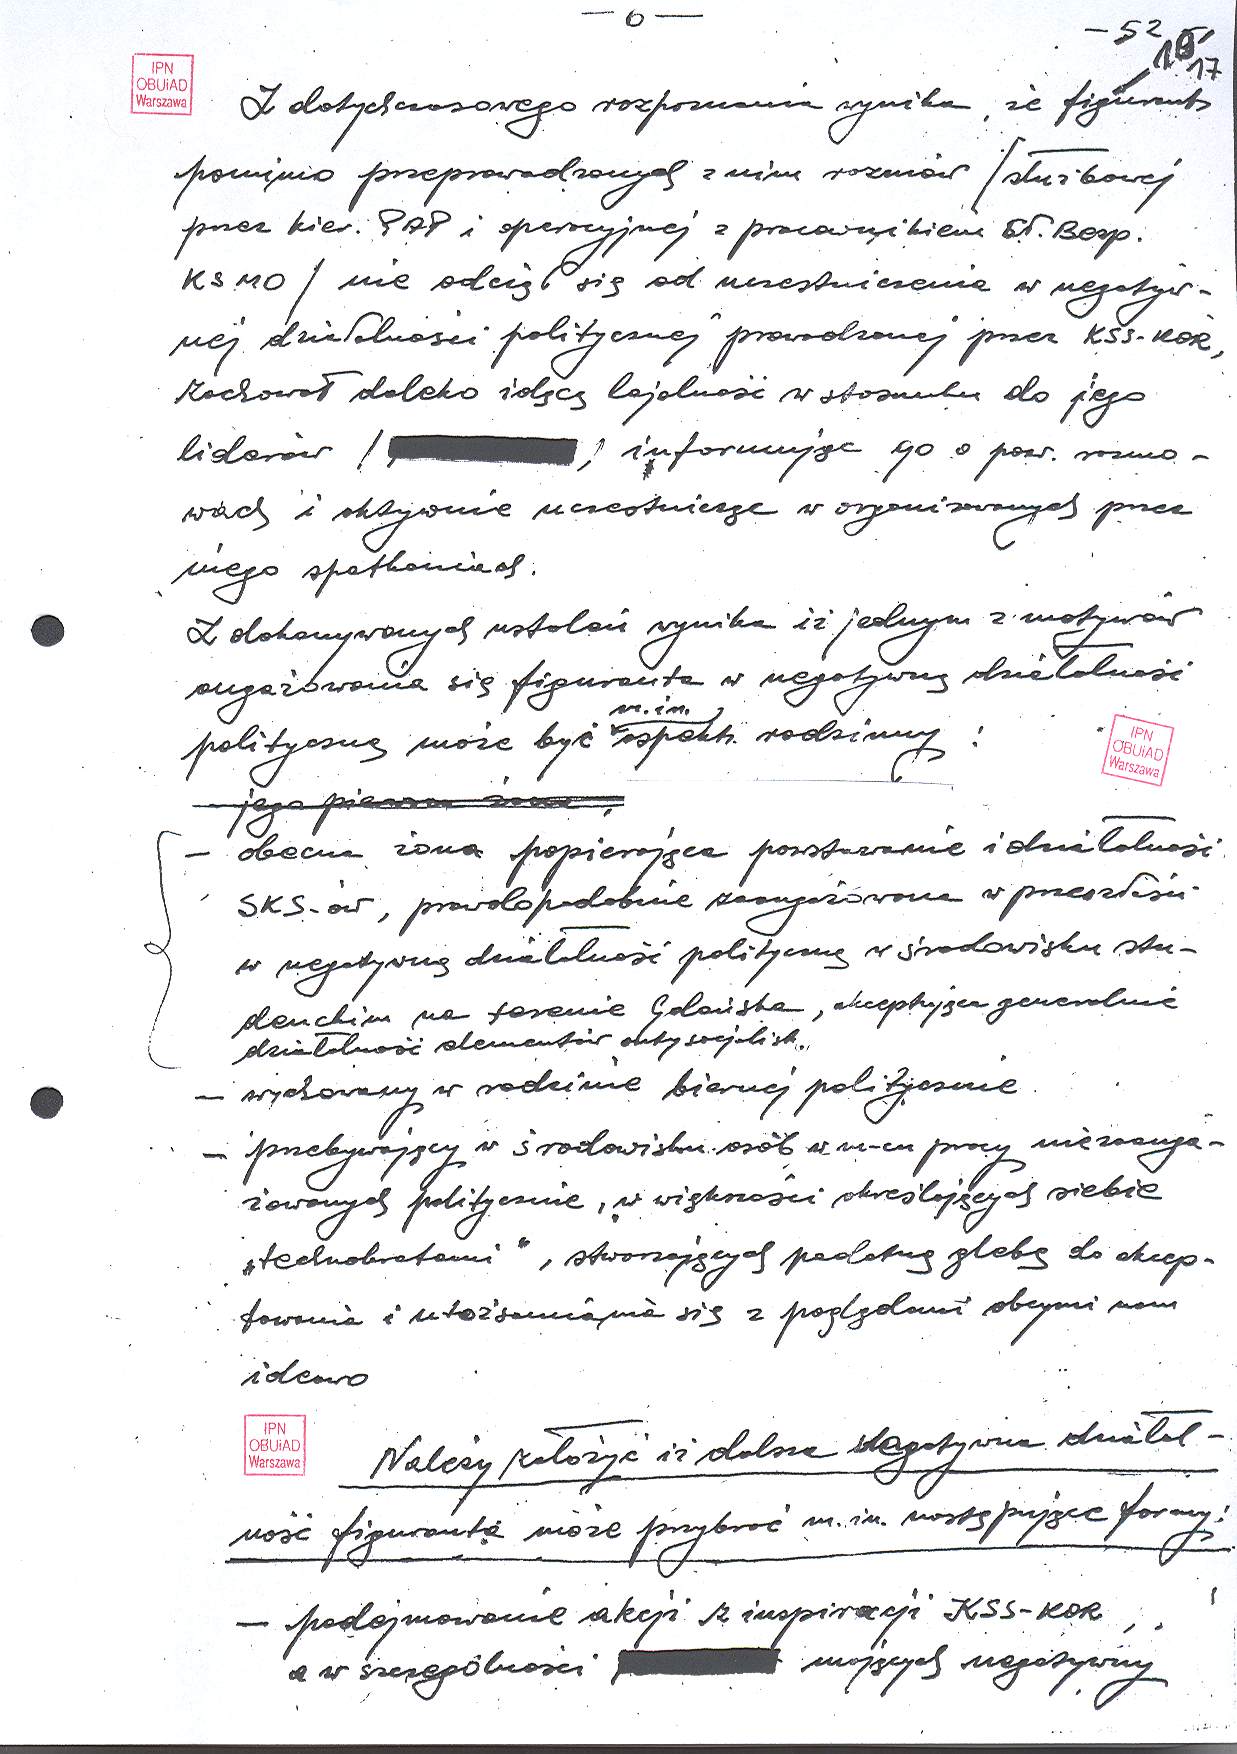 — 6 —
— 52
17
IPN
OBUiAD
Warszawa
Z dotychczasowego rozpoznania wynika, że figurant
pomimo przeprowadzonych z nim rozmów /służbowej
przez kier. PAP i operacyjnej z pracownikiem Sł. Bezp.
KSMO/ nie odciął się od uczestniczenia w negatyw-
nej działalności politycznej prowadzonej przez KSS-KOR,
zachował daleko idącą lojalność w stosunku do jego
liderów / / informując go o pow. rozmo-
wach i aktywnie uczestnicząc w organizowanych przez
niego spotkaniach.
Z dokonywanych ustaleń wynika iż jednym z motywów
angażowania się figuranta w negatywną działalność
polityczną może być m.in. aspekt rodzinny :
jego pierwsza żona
IPN
OBUiAD
Warszawa
— obecna żona popierająca powstawanie i działalność
SKS-ów, prawdopodobnie zaangażowana w przeszłości
w negatywną działalność polityczną w środowisku stu-
denckim na terenie Gdańska, akceptująca generalnie
działalność elementów antysocjalist.
— wychowany w rodzinie biernej politycznie
— przebywający w środowisku osób w m-cu pracy niezaanga-
żowanych politycznie, w większości określających siebie
„technokratami", stwarzających podatną glebę do akcep-
towania i utożsamiania się z poglądami obcymi nam
ideowo
IPN
OBUiAD
Warszawa
Należy założyć iż dalsza negatywna działal-
ność figuranta może przybrać m.in. następujące formy:
— podejmowanie akcji z inspiracji KSS-KOR,
a w szczególności mających negatywny